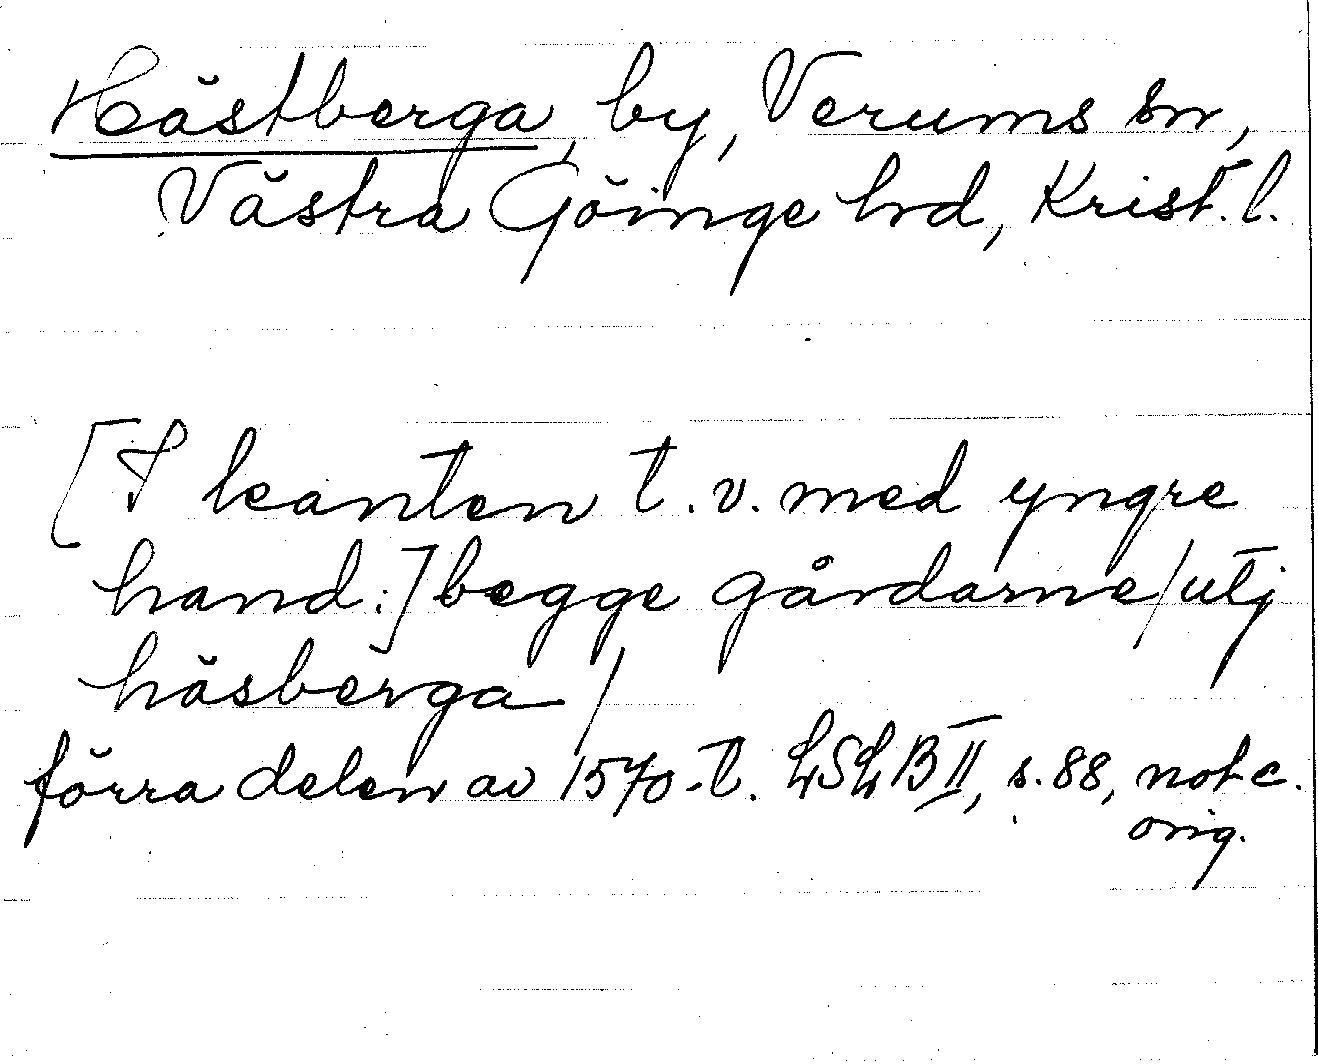 Hästberga, by, Verums sn,
Västra Göinge hd, Krist. l.
[I kanten t.v. med yngre
hand:] begge gårdarne / utj
häsberga /
förra delen av 1570-t. LSLB II, s. 88, not c.
orig.